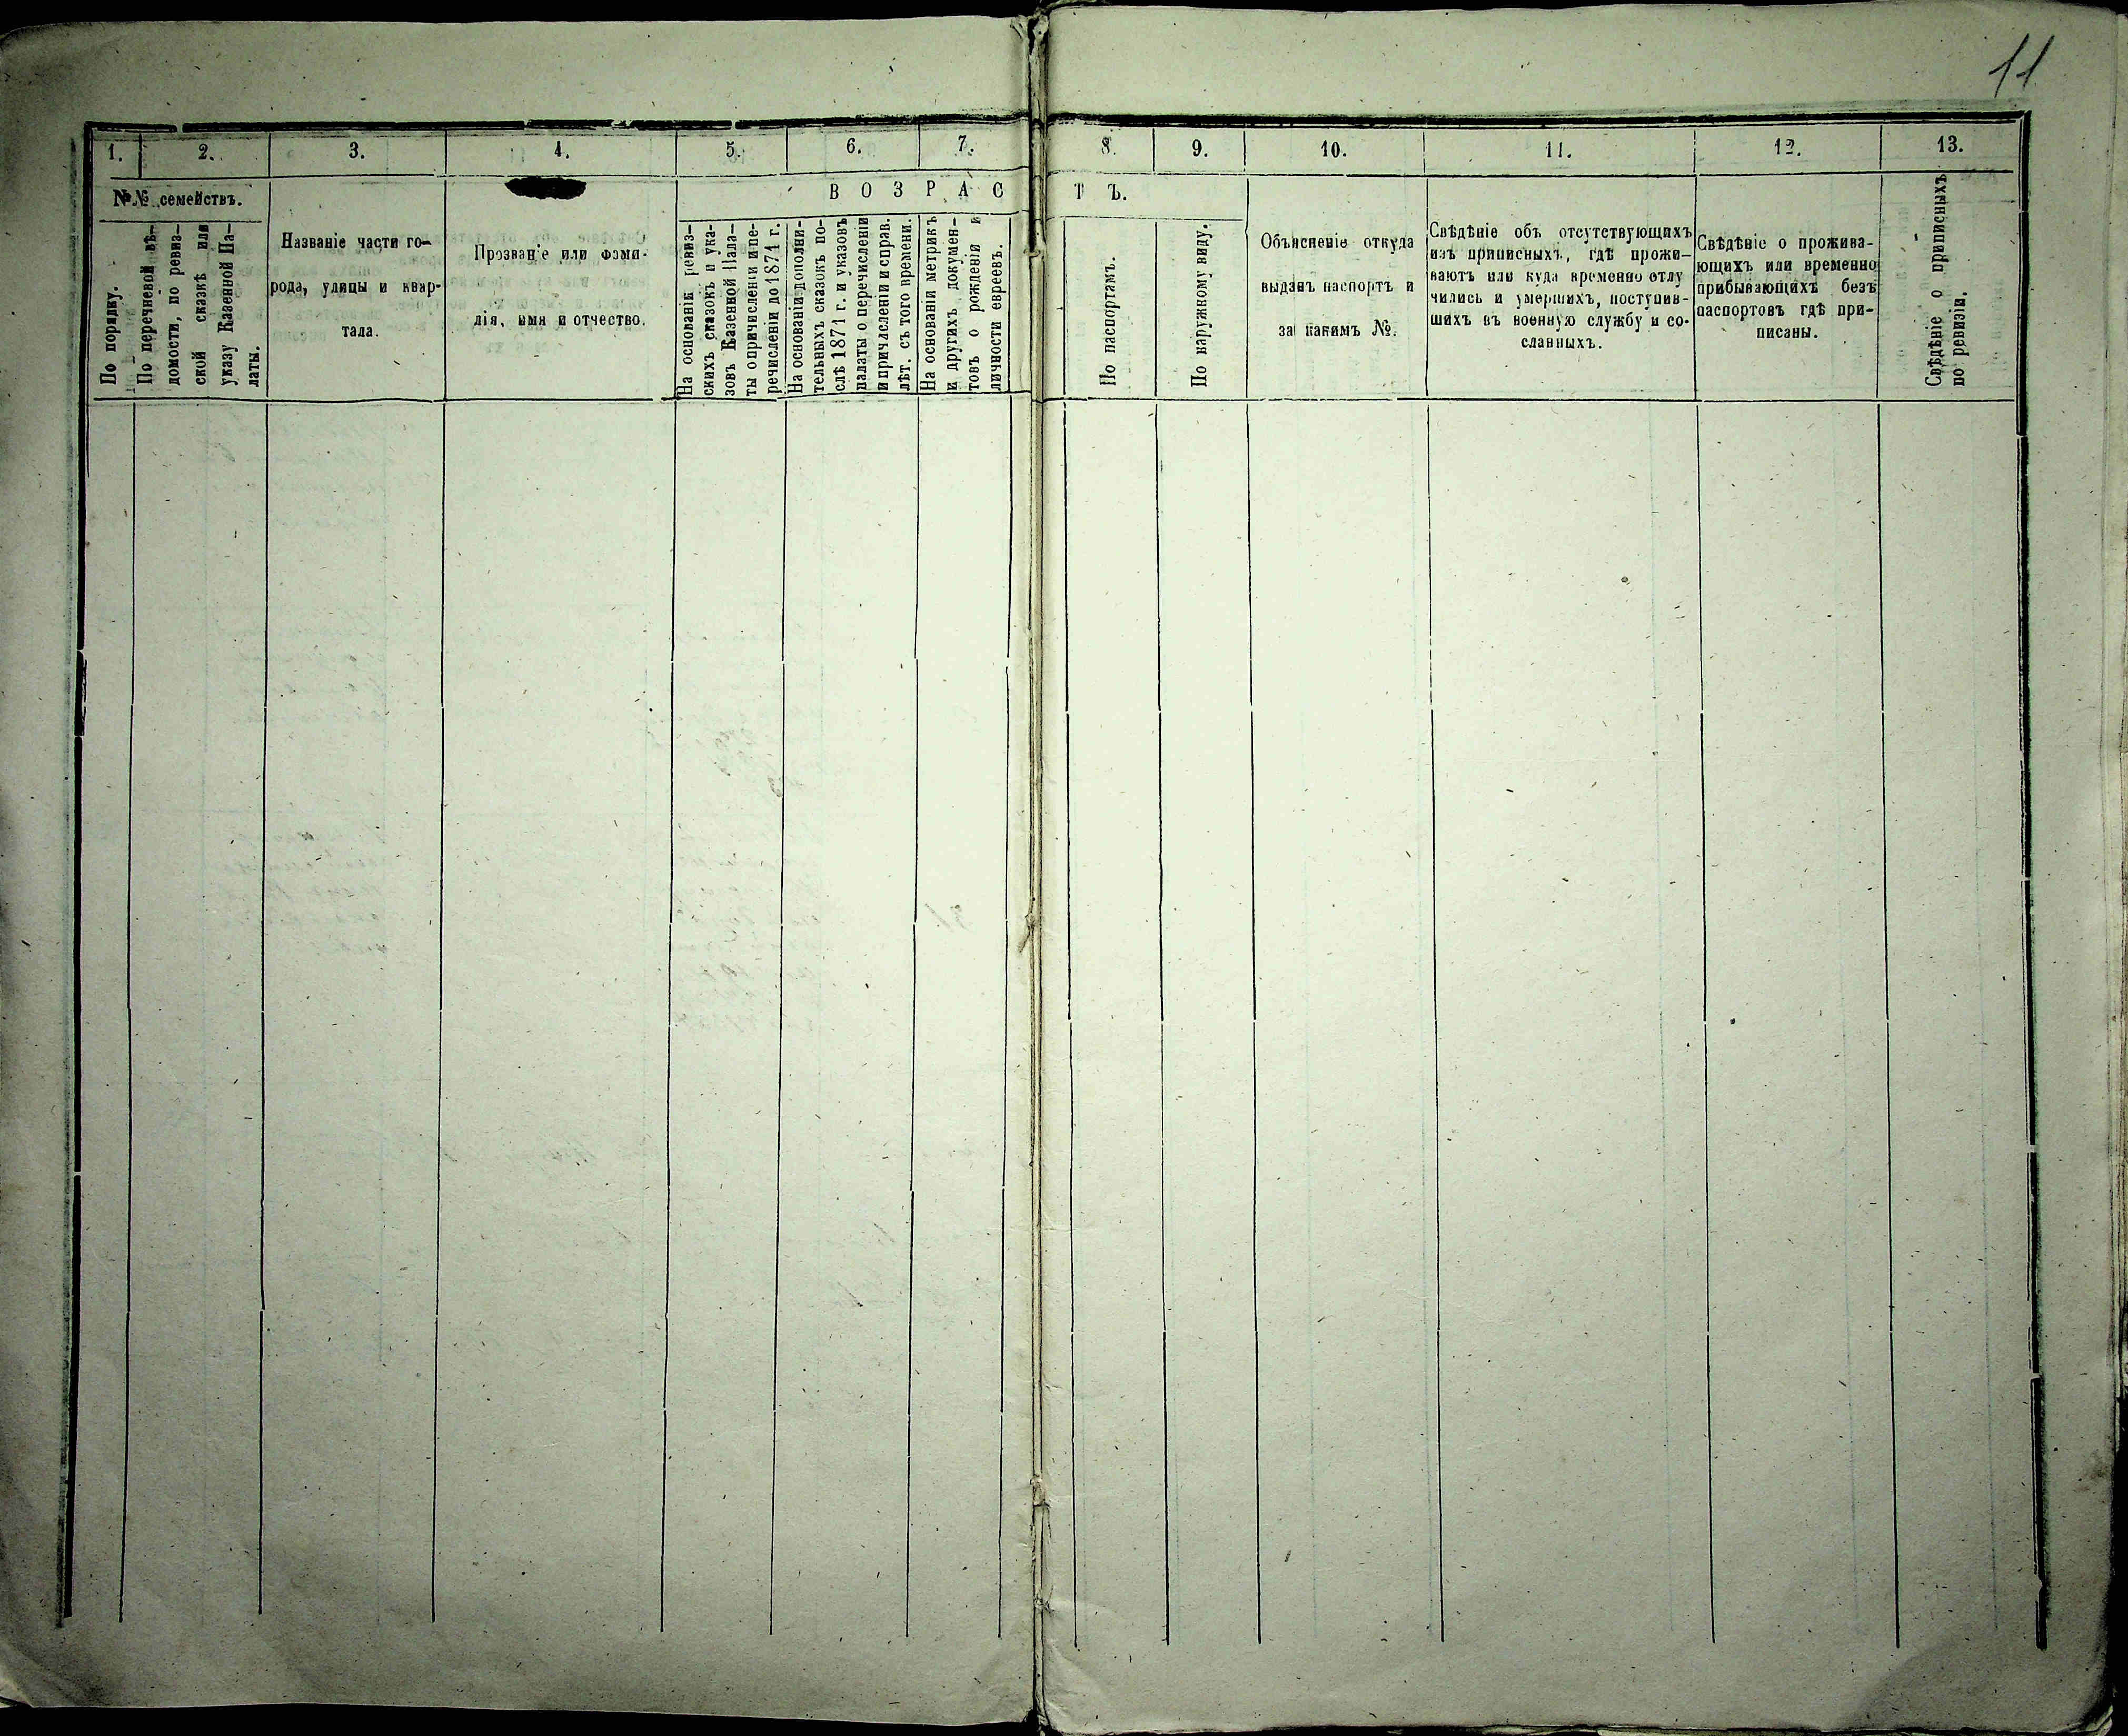 11
1. 2. 3. 4. 5. 6. 7. 8. 9. 10. 11. 12. 13.
№№ семействъ.
По порядку.
По перечневой вѣ-
домости, по ревиз-
ской сказкѣ или
указу Казенной Па-
латы.
Названіе части го-
рода, улицы и квар-
тала.
Прозваніе или фами-
лія, имя и отчество.
ВОЗРАСТЪ.
На основаніи ревиз-
скихъ сказокъ и ука-
зовъ Казенной Пала-
ты о причисленіи и пе-
речисленіи до 1871 г.
На основаніи дополни-
тельныхъ сказокъ по-
слѣ 1871 г. и указовъ
палаты о перечисленіи
и причисленіи и справ.
лѣт. съ того времени.
На основаніи метрикъ
и другихъ докумен-
товъ о рожденіи и
личности евреевъ.
По паспортамъ.
По наружному виду.
Объясненіе откуда
выданъ паспортъ и
за какимъ №.
Свѣдѣніе объ отсутствующихъ
изъ приписныхъ, гдѣ прожи-
ваютъ или куда временно отлу
чились и умершихъ, поступив-
шихъ въ военную службу и со-
сланныхъ.
Свѣдѣніе о прожива-
ющихъ или временно
прибывающихъ безъ
паспортовъ гдѣ при-
писаны.
Свѣдѣніе о приписныхъ
по ревизіи.